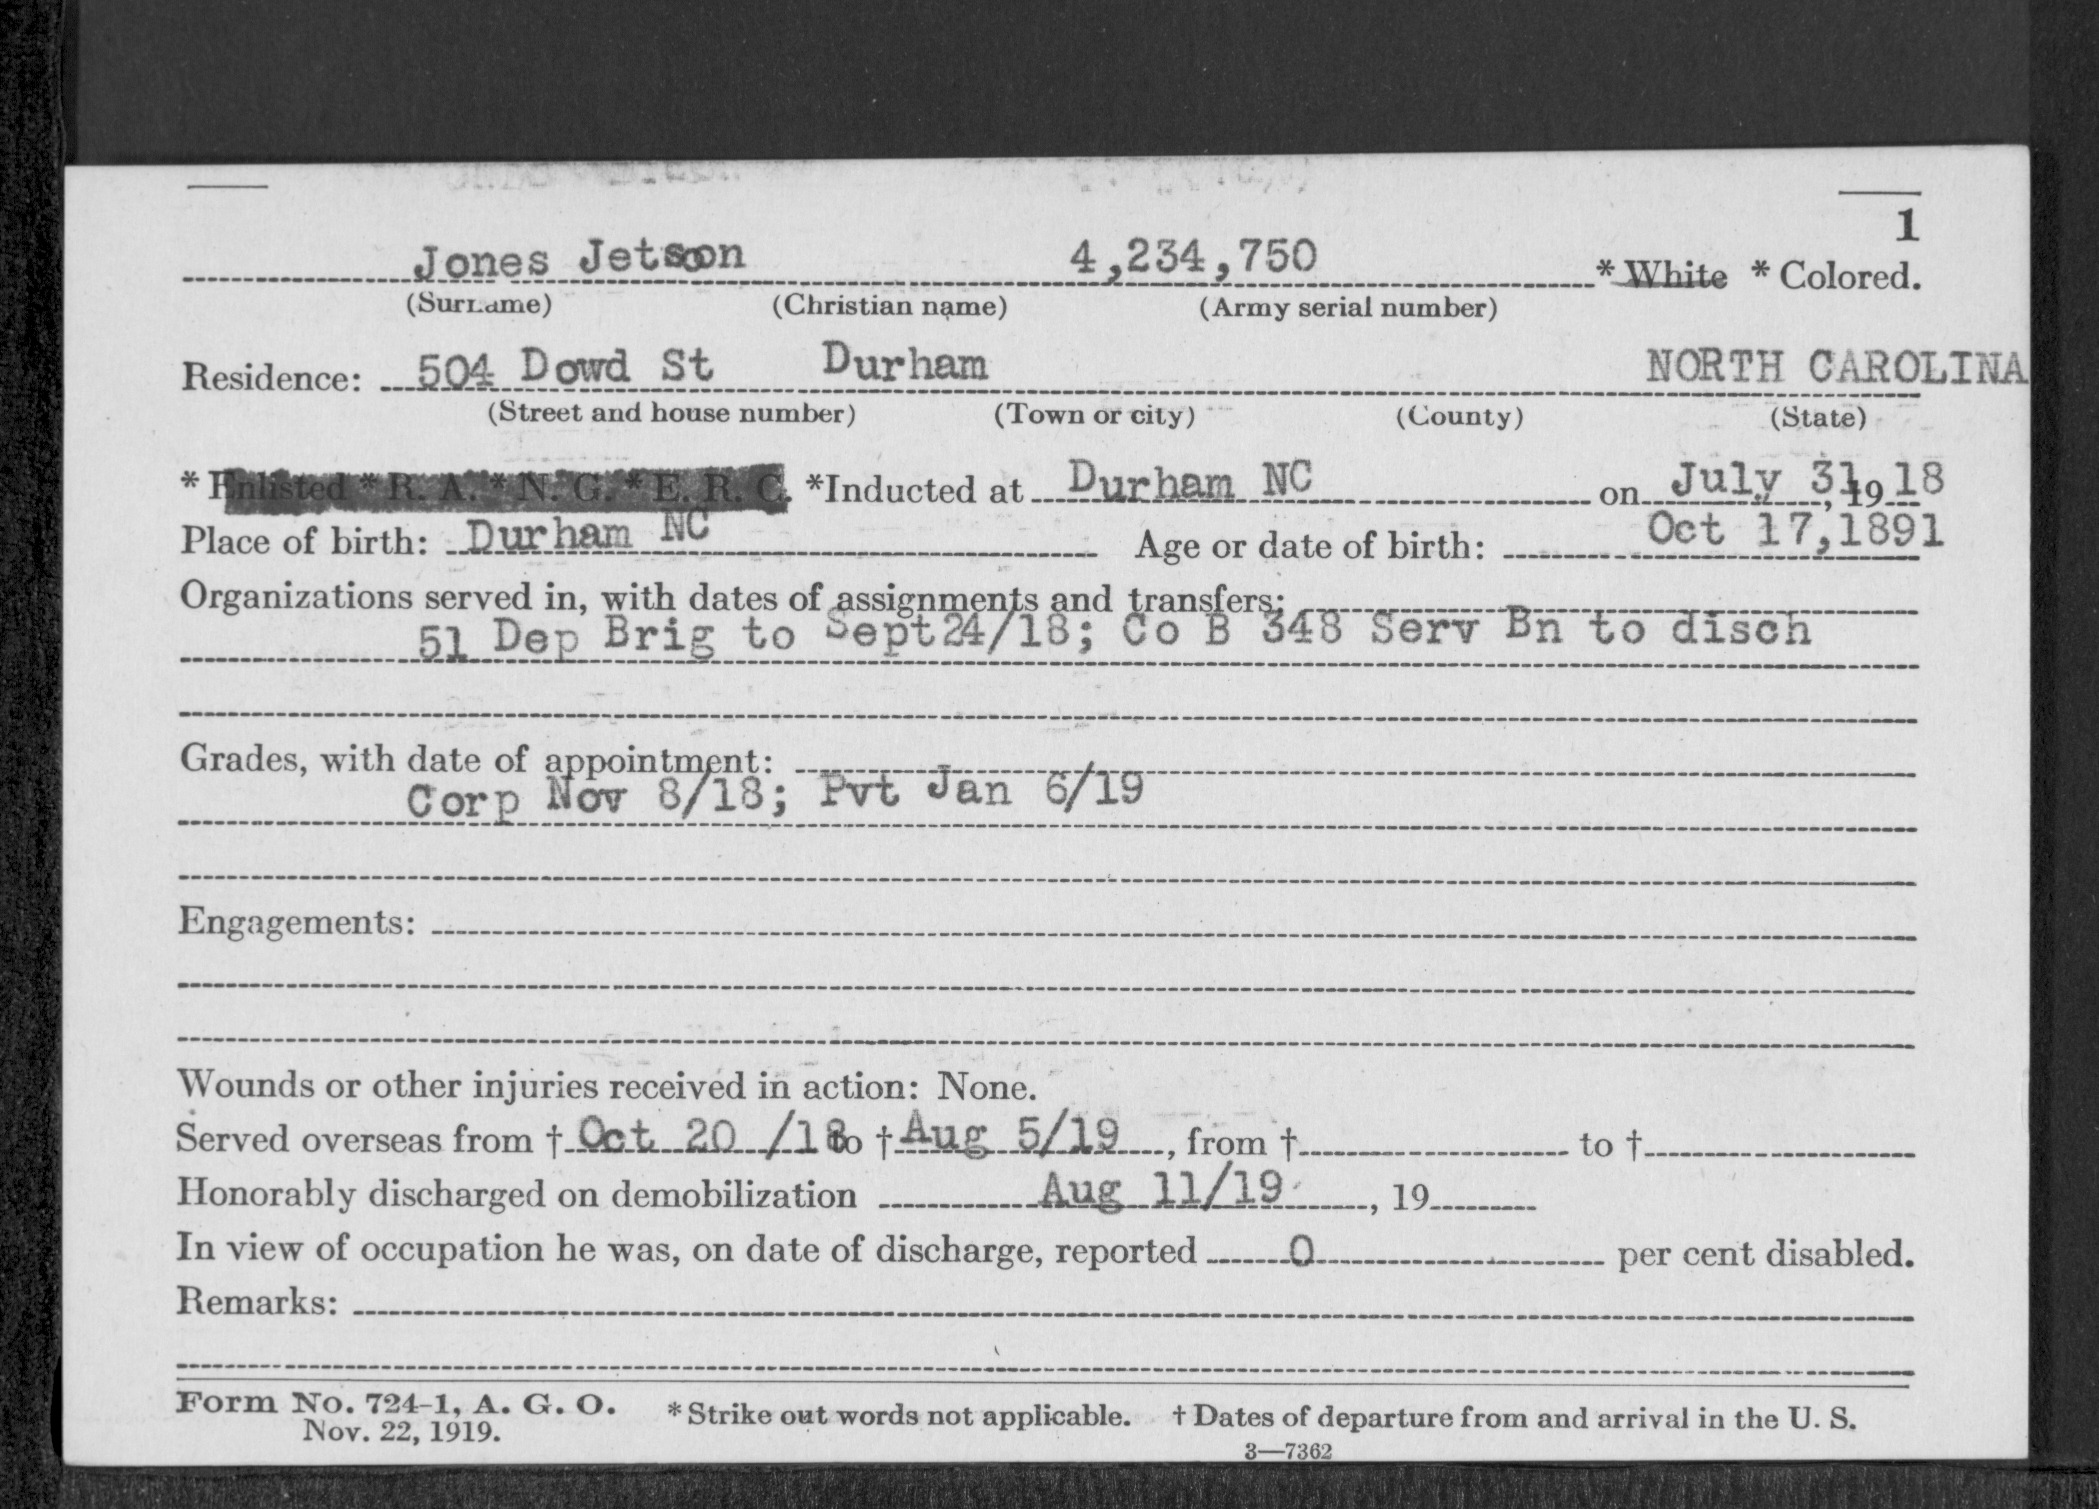 1
Jones Jetson 4,234,750 * White * Colored.
(Surname) (Christian name) (Army serial number)
Residence: 504 Dowd St Durham NORTH CAROLINA
(Street and house number) (Town or city) (County) (State)
* Enlisted * R. A. * N. G. * E. R. C. *Inducted at Durham NC on July 31, 19 18
Place of birth: Durham NC Age or date of birth: Oct 17,1891
Organizations served in, with dates of assignments and transfers:
51 Dep Brig to Sept 24/18; Co B 348 Serv Bn to disch
Grades, with date of appointment:
Corp Nov 8/18; Pvt Jan 6/19
Engagements:
Wounds or other injuries received in action: None.
Served overseas from † Oct 20 /18 to † Aug 5/19, from † to †
Honorably discharged on demobilization Aug 11/19, 19
In view of occupation he was, on date of discharge, reported 0 per cent disabled.
Remarks:
Form No. 724-1, A. G. O. * Strike out words not applicable. † Dates of departure from and arrival in the U. S.
Nov. 22, 1919.
3—7362